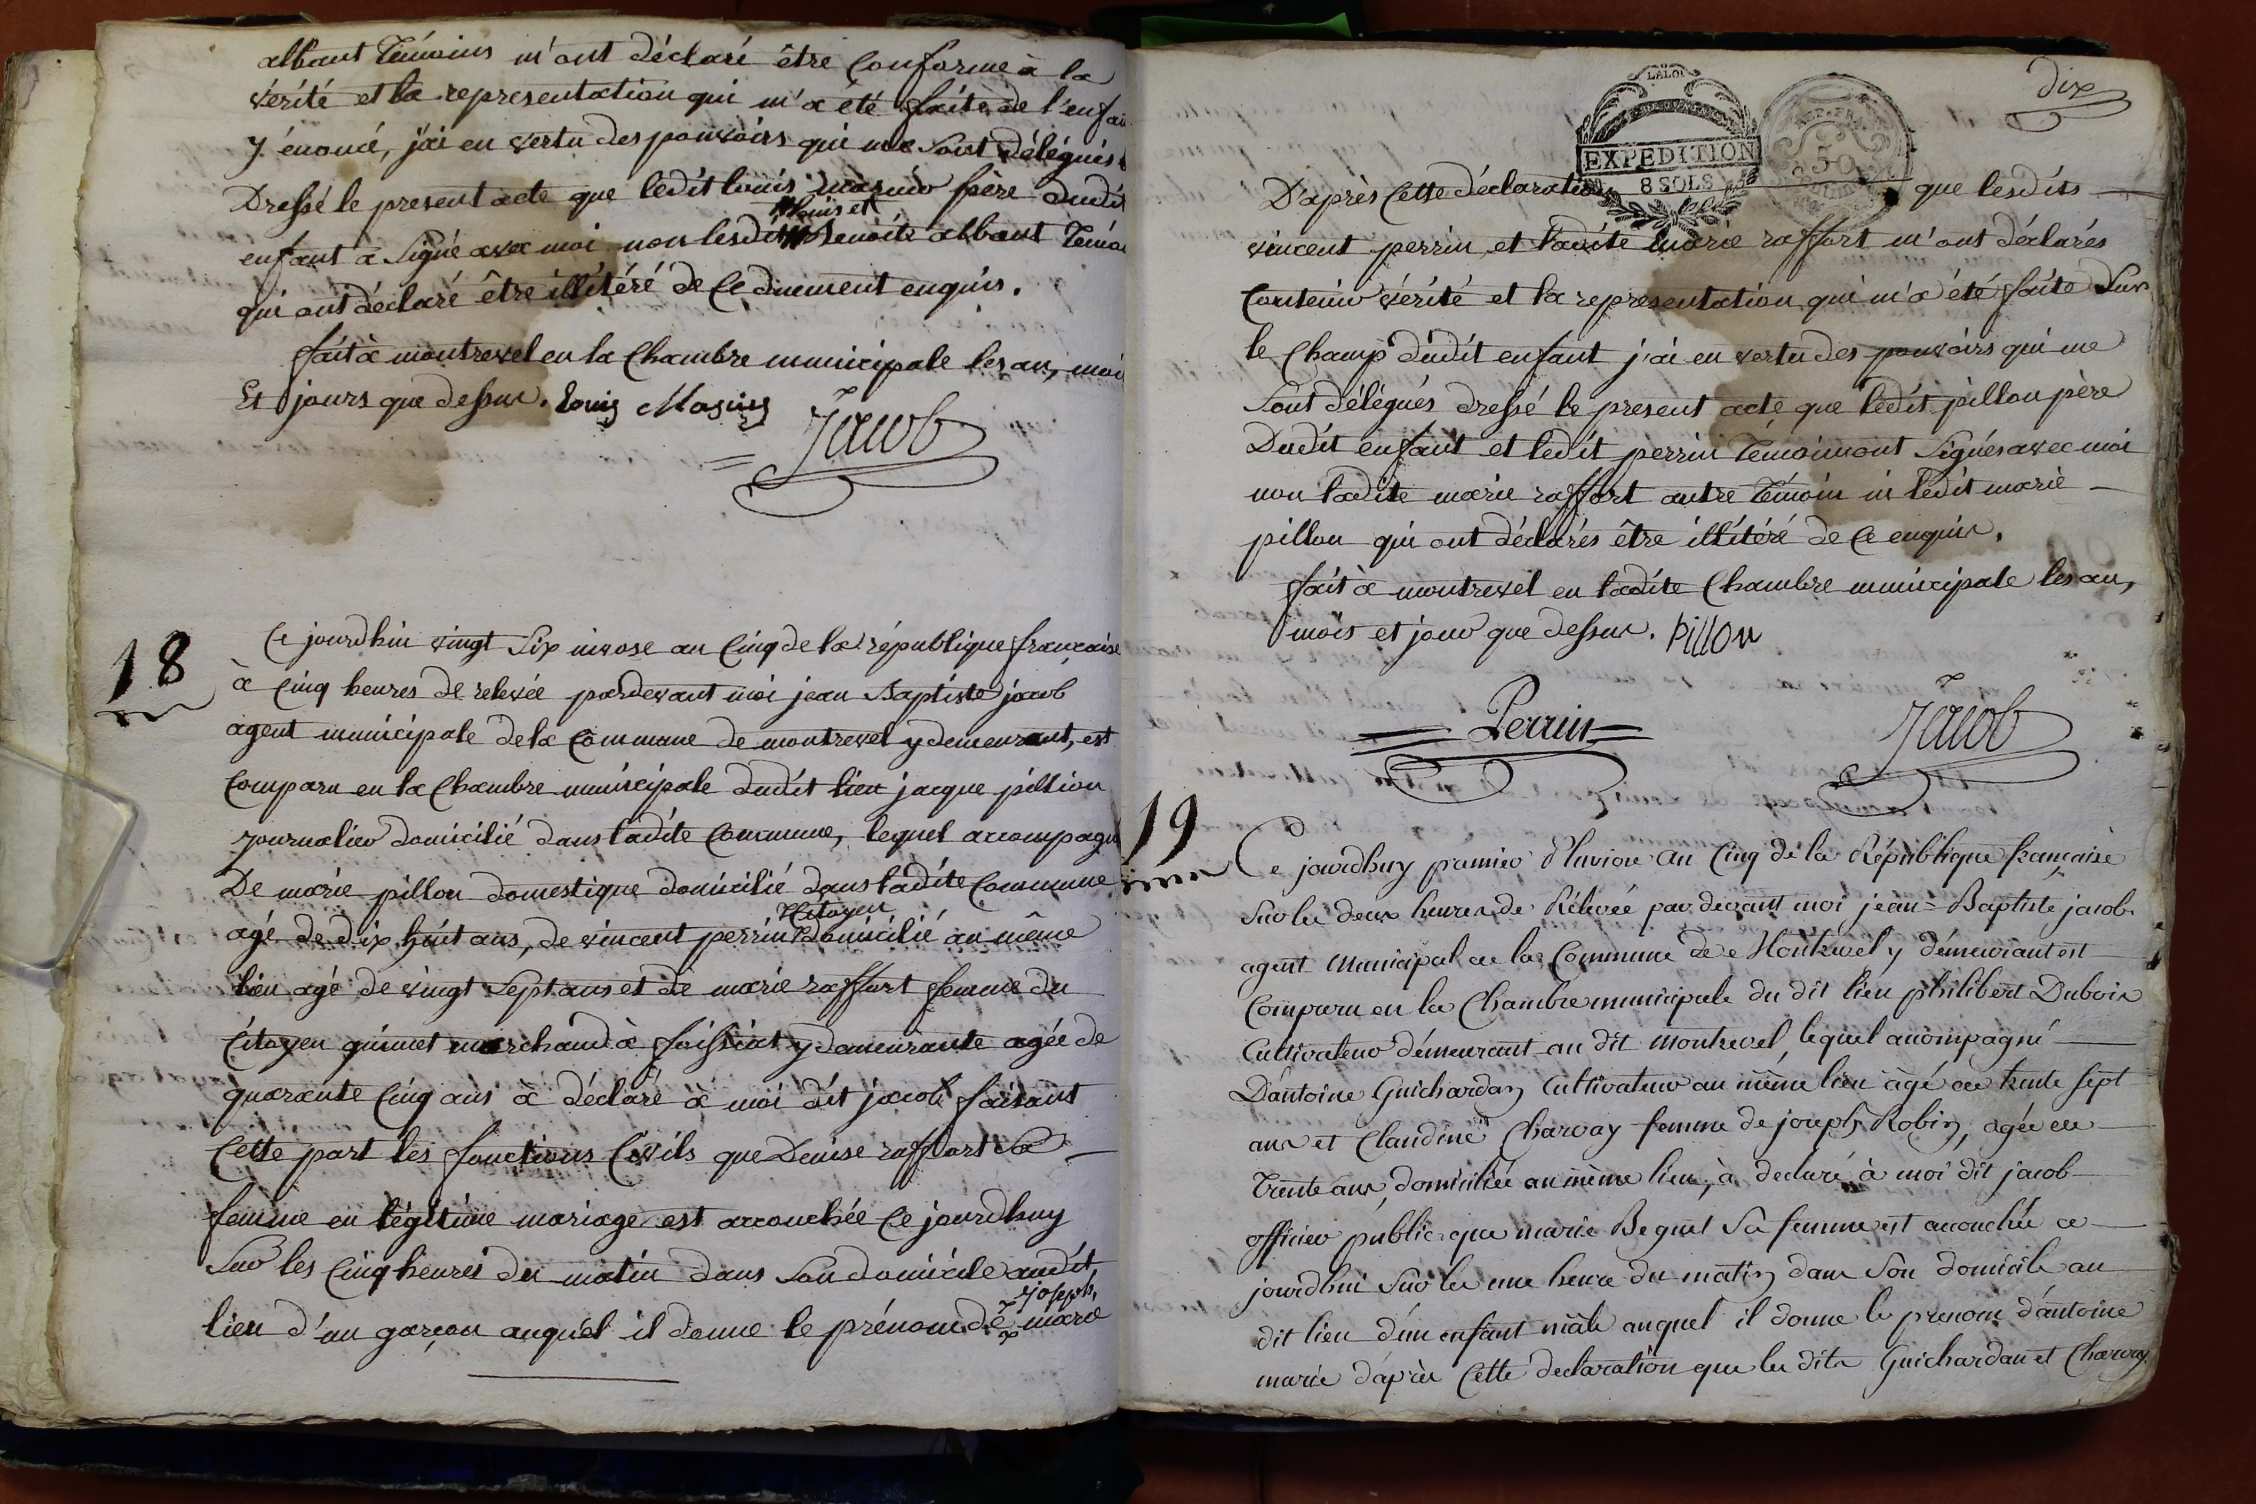 albant Témoins m'ont déclaré être Conforme à la
vérité et la representation qui m'a été faite de l'enfan
y énoncé, j'ai en vertu des pouvoirs qui me sont délégués
Dressé le present acte que ledit louis père dudit
louis et
enfant a signé avec moi non lesdits Benoite albant Témo
qui ont déclaré être illitéré de Ce duement enquis.
fait à montrevel en la Chambre municipale les an, moi
Et jours que dessus. Louis
Jacob
18
Ce jourdhui vingt Six nivose an Cinq de la république française
à Cinq heures de relevée pardevant moi jean Baptiste jacob
agent municipale de la Commune de montrevel y demeurant, est
Comparu en la Chambre municipale dudit lieu jacque pillion
journalier domicilié dans ladite Commune, lequel accompagn
De marie pillon domestique domicilié dans ladite Commune
Citoyen
agé de dix huit ans, de vincent perrin domicilié au même
lieu agé de vingt Sept ans et de marie raffort femme du
Citoyen guinet marchand à foissiat y demeurante agée de
quarante Cinq ans à déclaré à moi dit jacob faisant
Cette part les fonctions Civils que Denise raffort Sa
femme en légitime mariage est accouchée Ce jourdhuy
Sur les Cinq heures du matin dans Son domicile audit
joseph,
lieu d'un garçon auquel il donne le prénom de marie
dix
LA LOI
EXPEDITION
8 SOLS
REP. FRA.
50
D'après Cette déclaration que lesdits
vincent perrin et ladite marie raffort m'ont déclarés
Contenir vérité et la representation qui m'a été faite Sur
le Champ dudit enfant j'ai en vertu des pouvoirs qui me
Sont délégués dressé le present acte que ledit pillon père
Dudit enfant et ledit perrin Témoin ont Signés avec moi
non ladite marie raffort autre Témoin ni ledit marie
pillon qui ont déclarés être illitéré de Ce enquis.
fait à montrevel en ladite Chambre municipale les an,
mois et jour que dessus. pillon
Perrin
Jacob
19
Ce jourdhuy premier Pluviose an Cinq de la République française
Sur les deux heures de Rélevée par devant moi jean-Baptiste jacob
agent Municipal de la Commune de Montrevel y démeurant est
Comparu en la Chambre municipale du dit lieu philibert Dubois
Cultivateur démeurant au dit Montrevel, lequel accompagné
D'antoine Guichardan Cultivateur au même lieu âgé de trente sept
ans et Claudine Charvay femme de joseph Robin, agée de
Trente ans, domiciliée au même lieu, à declaré à moi dit jacob
officier public que marie Beguet Sa femme est accouchée ce
jourdhui Sur les une heure du matin dans Son domicile au
dit lieu d'un enfant mâle auquel il donne le prenom d'antoine
marie d'après Cette declaration que les dits Guichardan et Charvay